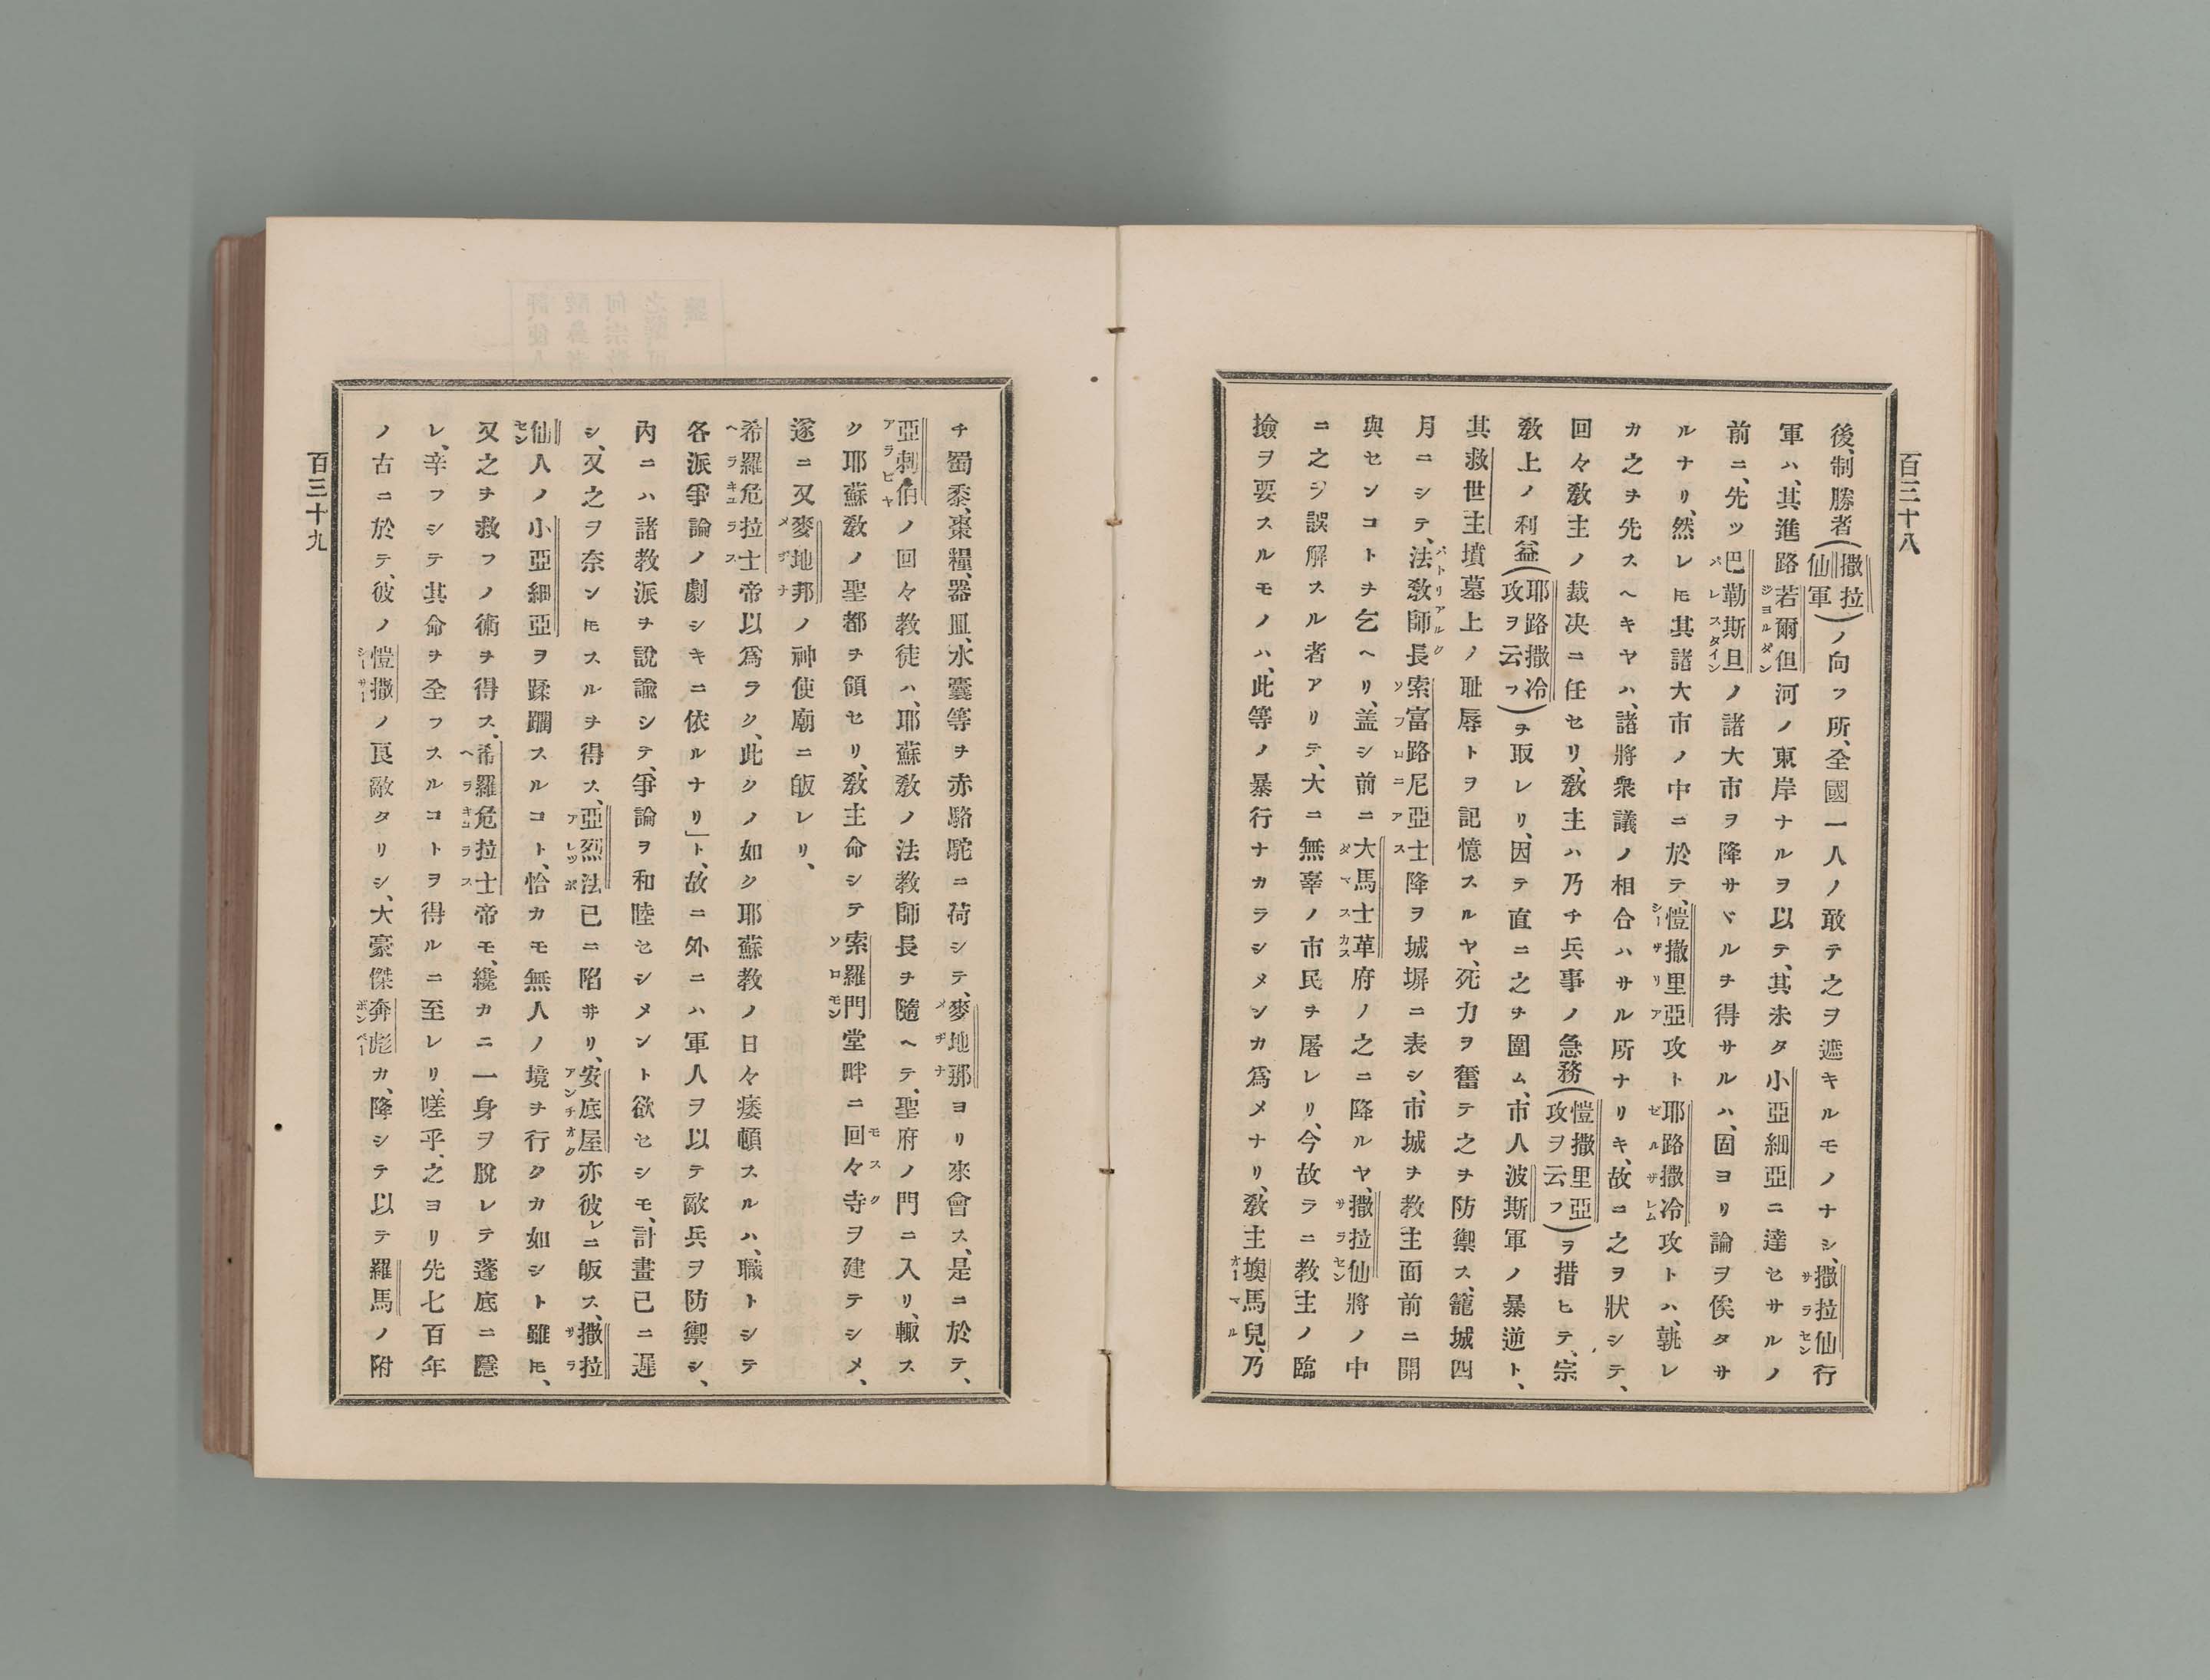 百三十八
後、制勝者(撒拉仙軍)ノ向フ所、全國一人ノ敢テ之ヲ遮キルモノナシ、撒拉仙行
軍ハ、其進路若爾但河ノ東岸ナルヲ以テ、其未タ小亞細亞ニ達セサルノ
前ニ、先ツ巴勒斯旦ノ諸大市ヲ降サヾルヲ得サルハ、固ヨリ論ヲ俟タサ
ルナリ、然レ𪜈其諸大市ノ中ニ於テ、愷撒里亞攻ト耶路撒冷攻トハ、孰レ
カ之ヲ先スヘキヤハ、諸將衆議ノ相合ハサル所ナリキ、故ニ之ヲ狀シテ、
回々敎主ノ裁決ニ任セリ、敎主ハ乃チ兵事ノ急務(愷撒里亞攻ヲ云フ)ヲ措ヒテ、宗
敎上ノ利益(耶路撒冷攻ヲ云フ)ヲ取レリ、因テ直ニ之ヲ圍ム、市人波斯軍ノ暴逆ト、
其救世主墳墓上ノ耻辱トヲ記憶スルヤ、死力ヲ奮テ之ヲ防禦ス、籠城四
月ニシテ、法敎師長索富路尼亞士降ヲ城塀ニ表シ、市城ヲ敎主面前ニ開
與センコトヲ乞ヘリ、盖シ前ニ大馬士革府ノ之ニ降ルヤ、撒拉仙將ノ中
ニ之ヲ誤解スル者アリテ、大ニ無辜ノ市民ヲ屠レリ、今故ラニ教主ノ臨
撿ヲ要スルモノハ、此等ノ暴行ナカラシメンカ爲メナリ、敎主墺馬兒、乃
チ蜀黍、棗糧、器皿、水囊等ヲ赤駱駝ニ荷シテ、麥地那ヨリ來會ス、是ニ於テ、
亞剌伯ノ回々教徒ハ、耶蘇敎ノ法教師長ヲ隨ヘテ、聖府ノ門ニ入リ、輙ス
ク耶蘇敎ノ聖都ヲ領セリ、敎主命シテ索羅門堂畔ニ回々寺ヲ建テシメ、
遂ニ又麥地邦ノ神使廟ニ皈レリ、
希羅危拉士帝以爲ラク、此クノ如ク耶蘇教ノ日々痿頓スルハ、職トシテ
各派爭論ノ劇シキニ依ルナリ」ト、故ニ外ニハ軍人ヲ以テ敵兵ヲ防禦シ、
內ニハ諸教派ヲ說諭シテ、爭論ヲ和睦セシメント欲セシモ、計畫已ニ遲
シ、又之ヲ奈ン𪜈スルヲ得ス、亞烈法已ニ陷サリ、安底屋亦彼レニ皈ス、撒拉
仙人ノ小亞細亞ヲ蹂躙スルコト、恰カモ無人ノ境ヲ行クカ如シト雖𪜈、
又之ヲ救フノ術ヲ得ス、希羅危拉士帝モ、纔カニ一身ヲ脫レテ蓬底ニ隱
レ、辛フシテ其命ヲ全フスルコトヲ得ルニ至レリ、嗟乎、之ヨリ先七百年
ノ古ニ於テ、彼ノ愷撒ノ良敵タリシ、大豪傑奔彪カ、降シテ以テ羅馬ノ附
百三十九